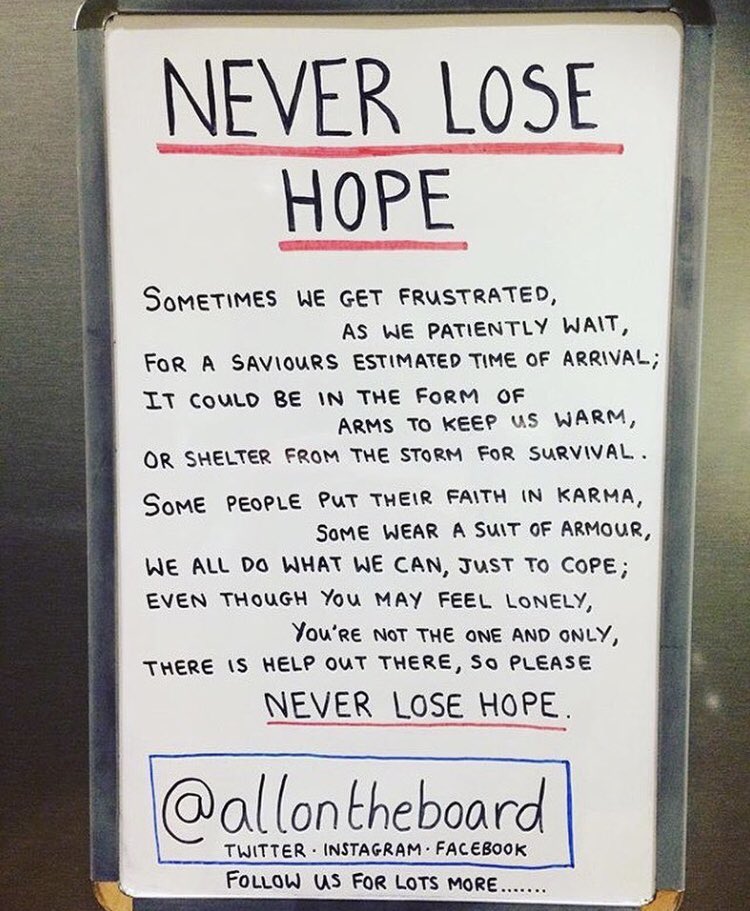 NEVER LOSE
HOPE
SOMETIMES WE GET FRUSTRATED,
AS WE PATIENTLY WAIT,
FOR A SAVIOURS ESTIMATED TIME OF ARRIVAL;
IT COULD BE IN THE FORM OF
ARMS TO KEEP US WARM,
OR SHELTER FROM THE STORM FOR SURVIVAL.
SOME PEOPLE PUT THEIR FAITH IN KARMA,
SOME WEAR A SUIT OF ARMOUR,
WE ALL DO WHAT WE CAN, JUST TO COPE;
EVEN THOUGH YOU MAY FEEL LONELY,
YOU'RE NOT THE ONE AND ONLY,
THERE IS HELP OUT THERE, SO PLEASE
NEVER LOSE HOPE.
@allontheboard
TWITTER · INSTAGRAM · FACEBOOK
FOLLOW US FOR LOTS MORE.......